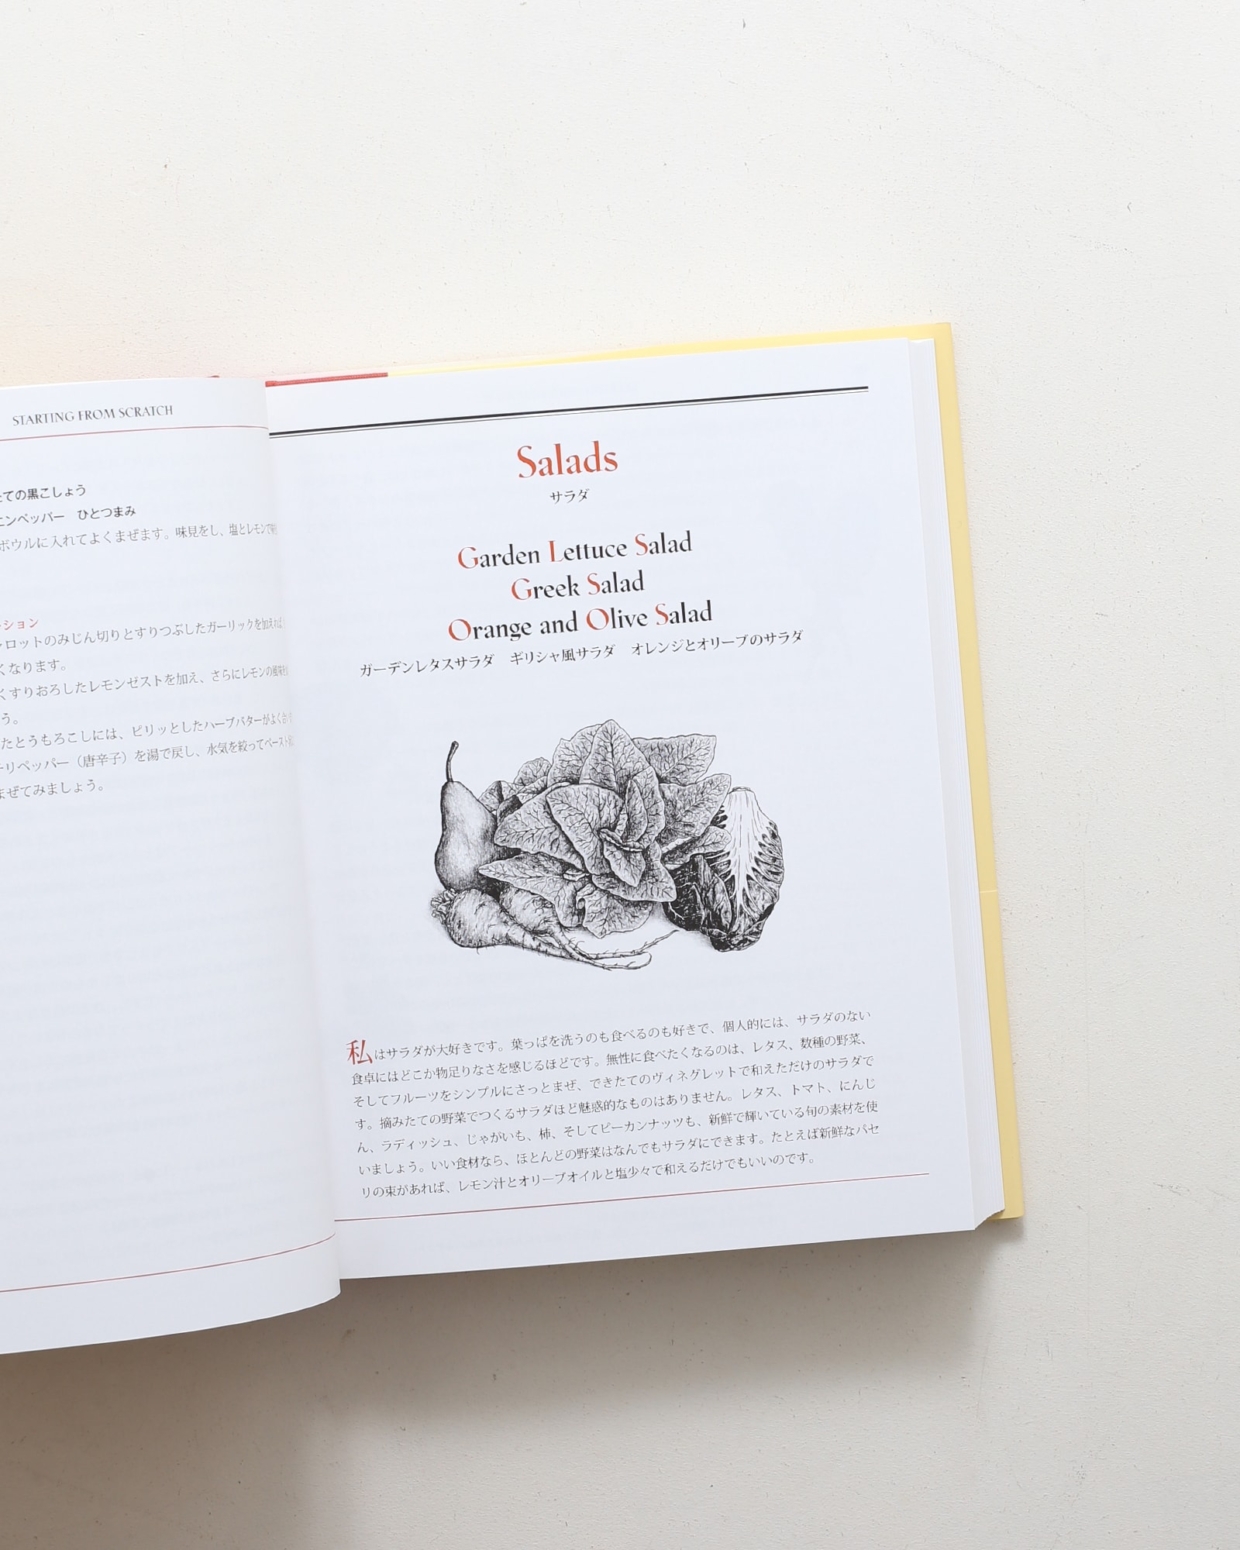 STARTING FROM SCRATCH
ての黒こしょう
ンペッパー　ひとつまみ
ボウルに入れてよくまぜます。味見をし、塩とレモンで
ション
ロットのみじん切りとすりつぶしたガーリックを加えれば
くなります。
くすりおろしたレモンゼストを加え、さらにレモンの風味を
う。
たとうもろこしには、ピリッとしたハーブバターがよく合
リペッパー（唐辛子）を湯で戻し、水気を絞ってペースト
まぜてみましょう。
Salads
サラダ
Garden Lettuce Salad
Greek Salad
Orange and Olive Salad
ガーデンレタスサラダ　ギリシャ風サラダ　オレンジとオリーブのサラダ
私はサラダが大好きです。葉っぱを洗うのも食べるのも好きで、個人的には、サラダのない
食卓にはどこか物足りなさを感じるほどです。無性に食べたくなるのは、レタス、数種の野菜、
そしてフルーツをシンプルにさっとまぜ、できたてのヴィネグレットで和えただけのサラダで
す。摘みたての野菜でつくるサラダほど魅惑的なものはありません。レタス、トマト、にんじ
ん、ラディッシュ、じゃがいも、柿、そしてピーカンナッツも、新鮮で輝いている旬の素材を使
いましょう。いい食材なら、ほとんどの野菜はなんでもサラダにできます。たとえば新鮮なパセ
リの束があれば、レモン汁とオリーブオイルと塩少々で和えるだけでもいいのです。